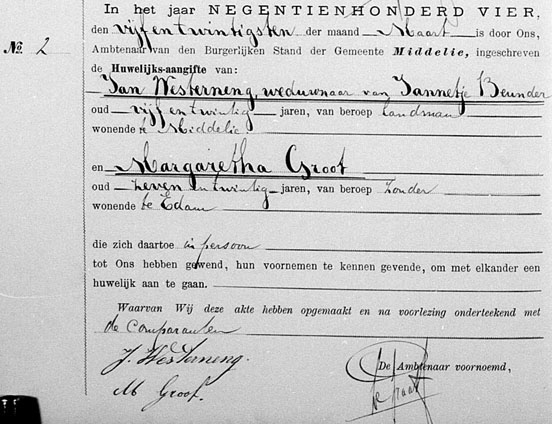 In het jaar NEGENTIENHONDERD VIER,
den vijf en twintigsten der maand Maart is door Ons,
№ 2
Ambtenaar van den Burgerlijken Stand der Gemeente Middelie, ingeschreven
de Huwelijks-aangifte van:
Jan Westerneng, weduwnaar van Jannetje Beunder
oud vijf en twintig jaren, van beroep Landman
wonende te Middelie
en Margaretha Groot
oud zeven en twintig jaren, van beroep zonder
wonende te Edam
die zich daartoe in persoon
tot Ons hebben gewend, hun voornemen te kennen gevende, om met elkander een
huwelijk aan te gaan.
Waarvan Wij deze akte hebben opgemaakt en na voorlezing onderteekend met
de comparanten
J. Westerneng.
De Ambtenaar voornoemd,
M Groot.